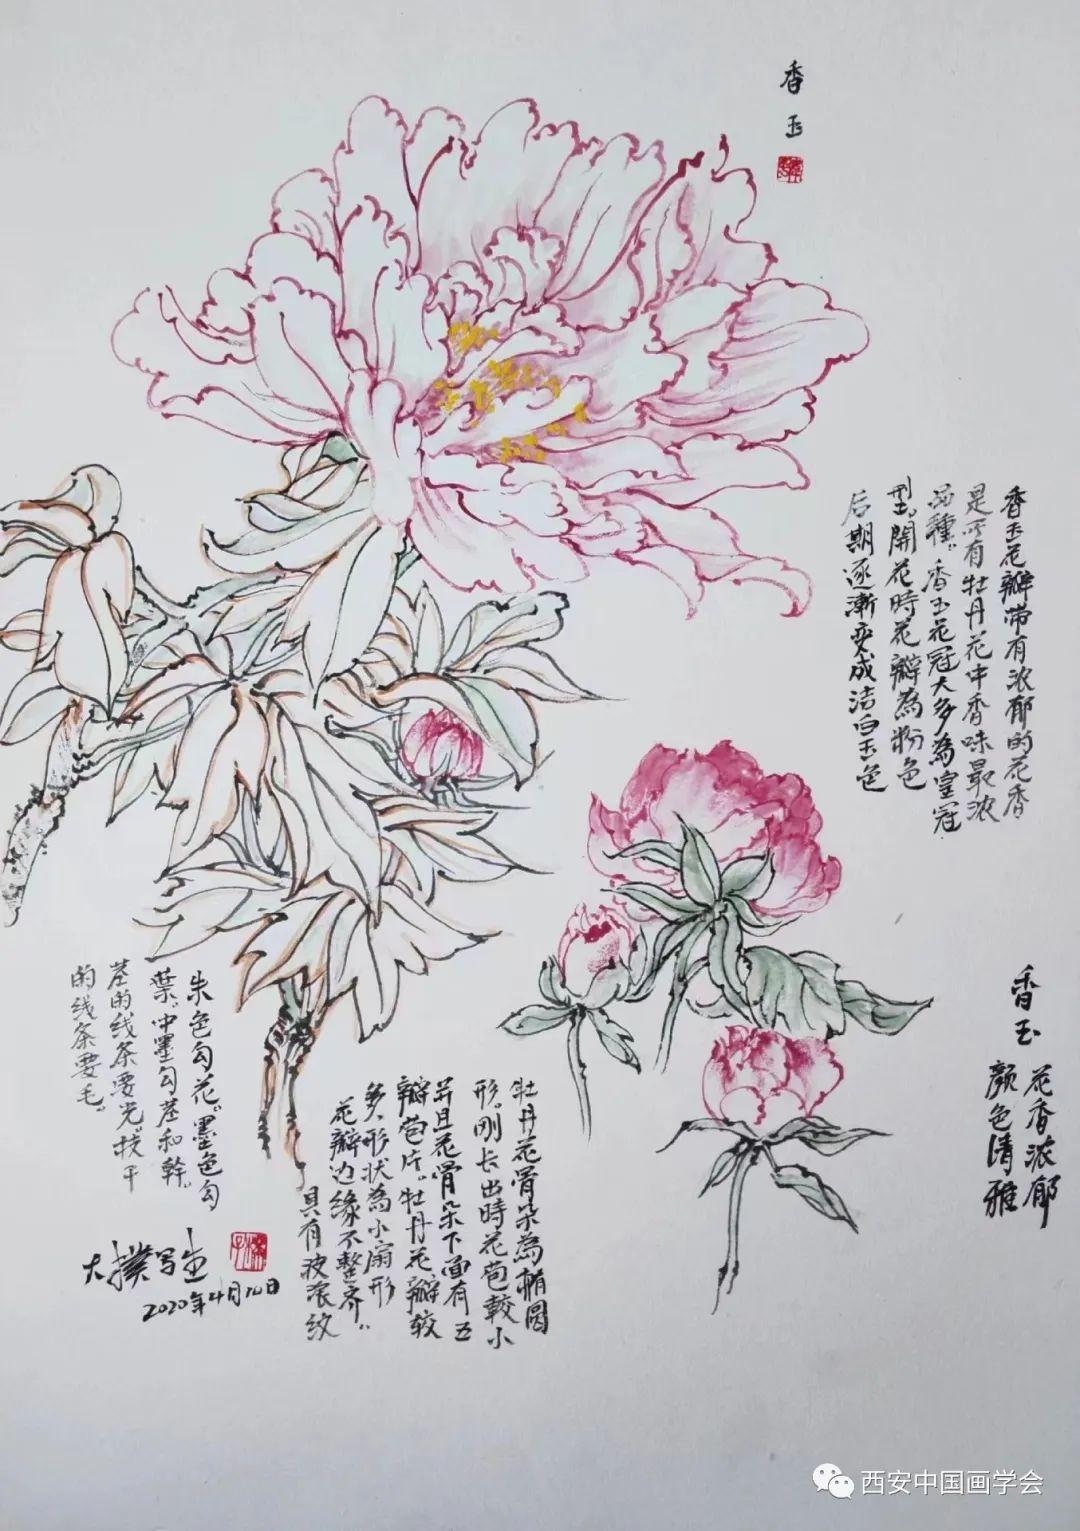 香玉
香玉花瓣带有浓郁的花香
是所有牡丹花中香味最浓
品種。香玉花冠大多為皇冠
型。開花時花瓣為粉色
后期逐漸变成洁白玉色
香玉
花香浓郁
颜色清雅
牡丹花骨朵為椭圆
形。刚长出時花苞較小
并且花骨朵下面有五
瓣苞片。牡丹花瓣较
多、形状為小扇形
花瓣边缘不整齐。
具有波浪纹
朱色勾花。墨色勾
葉。中墨勾茎和幹。
茎的线条要光。枝干
的线条要毛。
大撲写生
2020年4月10日
西安中国画学会